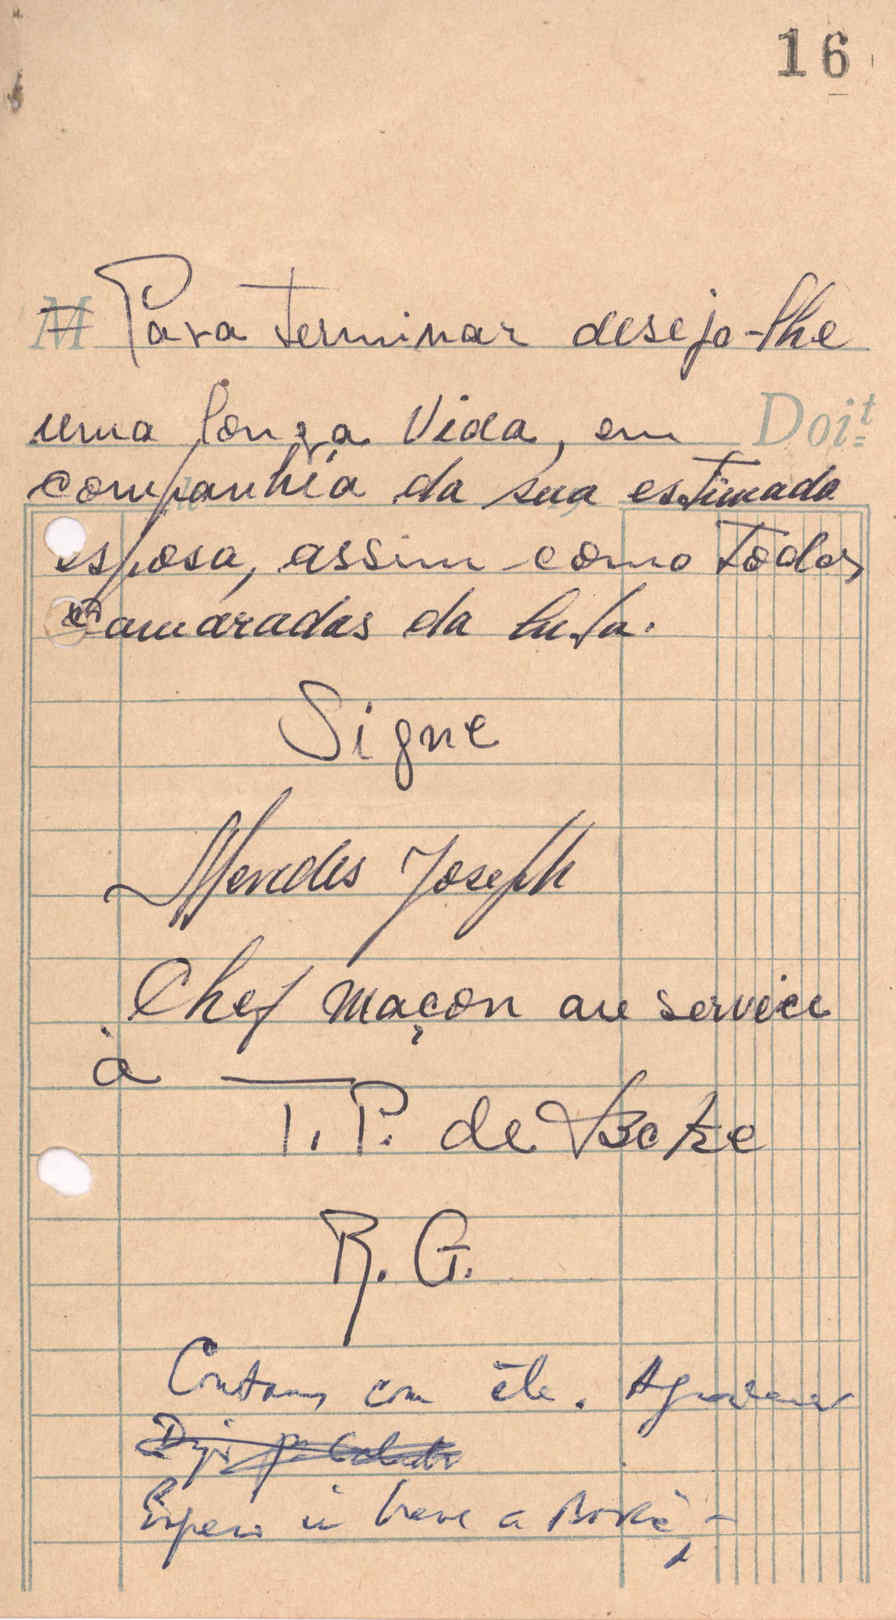 16
M Para terminar desejo-lhe
uma longa vida, em Doit
companhia da sua estimada
esposa, assim como todos
camaradas da luta.
Signe
Mendes Joseph
Chef maçon au service
à
T.P. de Boké
R.G.
Contamos com êle. Agradecer
Espero ir breve a Boké -